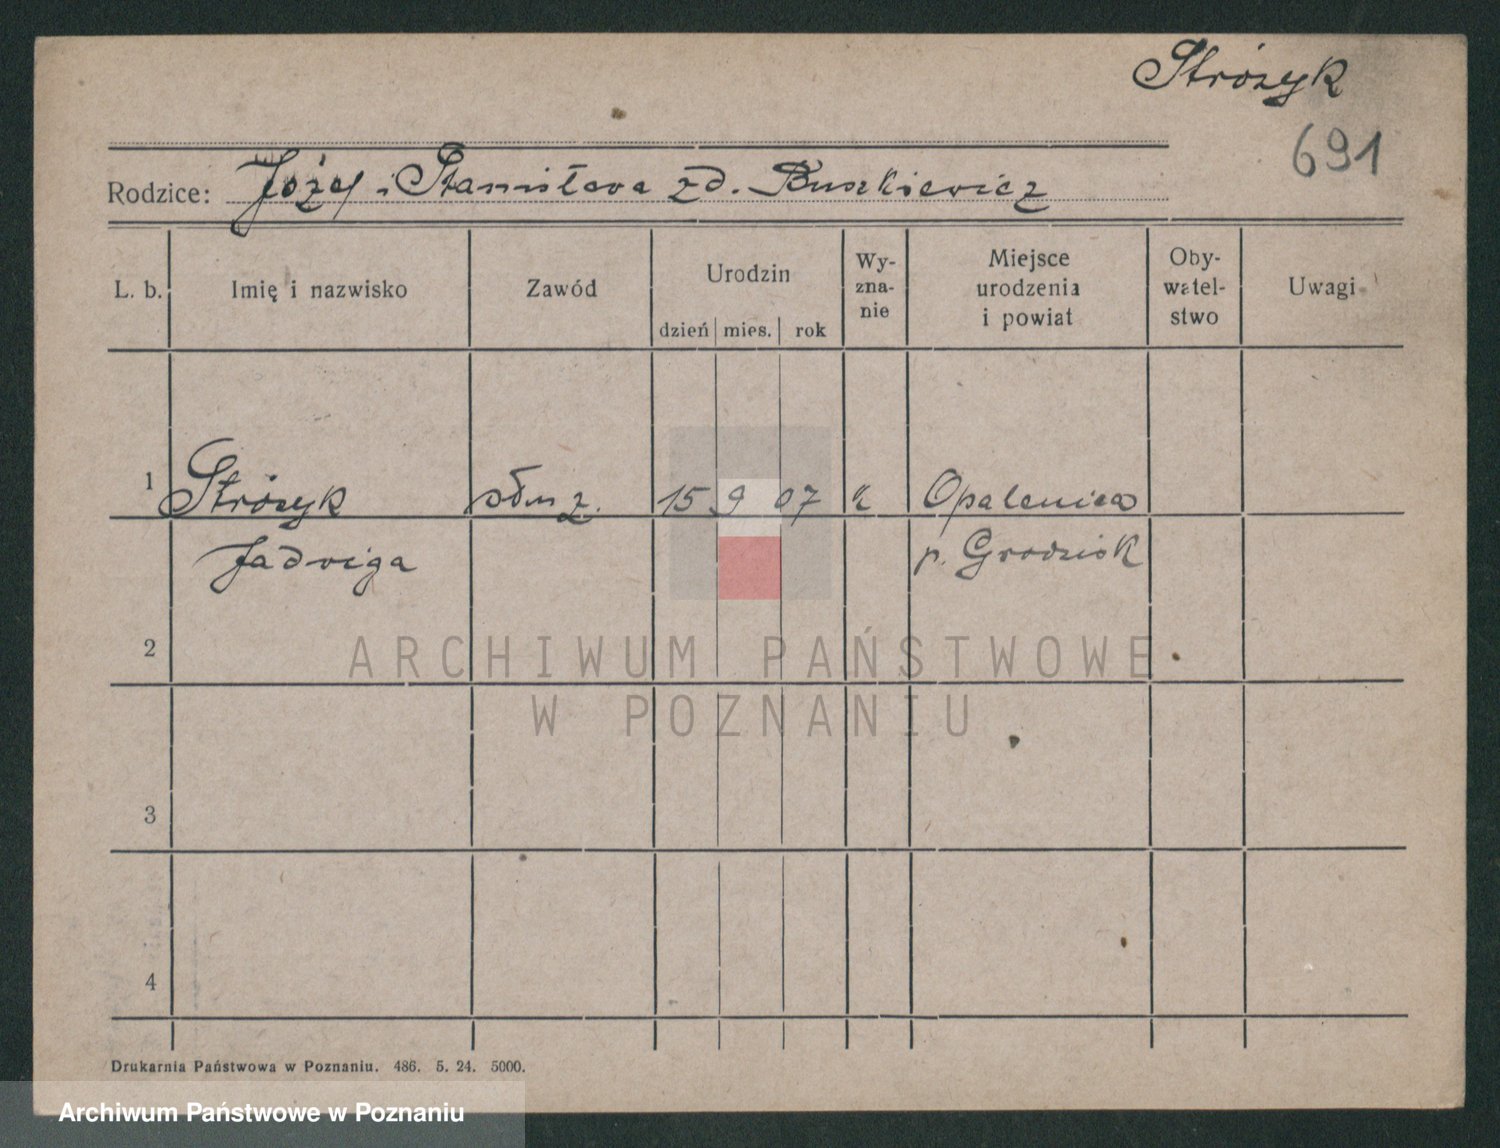 Stróżyk
691
Rodzice: Józef i Stanisława zd. Buszkiewicz
L. b. Imię i nazwisko Zawód Urodzin dzień mies. rok Wy-zna-nie Miejsce urodzenia i powiat Oby-watel-stwo Uwagi
1 Stróżyk 15 9 07 k Opalenica
Jadwiga p. Grodzisk
2
ARCHIWUM PAŃSTWOWE
W POZNANIU
3
4
Drukarnia Państwowa w Poznaniu. 486. 5. 24. 5000.
Archiwum Państwowe w Poznaniu